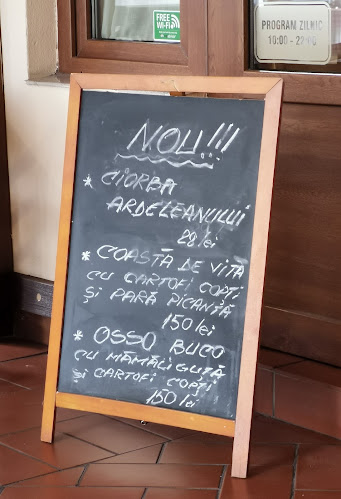 FREE
Wi-Fi
PROGRAM ZILNIC
10:00 - 22:00
NOU!!!
* CIORBA
ARDELEANULUI
28 lei
* COASTĂ DE VITĂ
CU CARTOFI COPȚI
ȘI PARĂ PICANTĂ
150 lei
* OSSO BUCO
CU MĂMĂLIGUȚĂ
ȘI CARTOFI COPȚI
150 lei